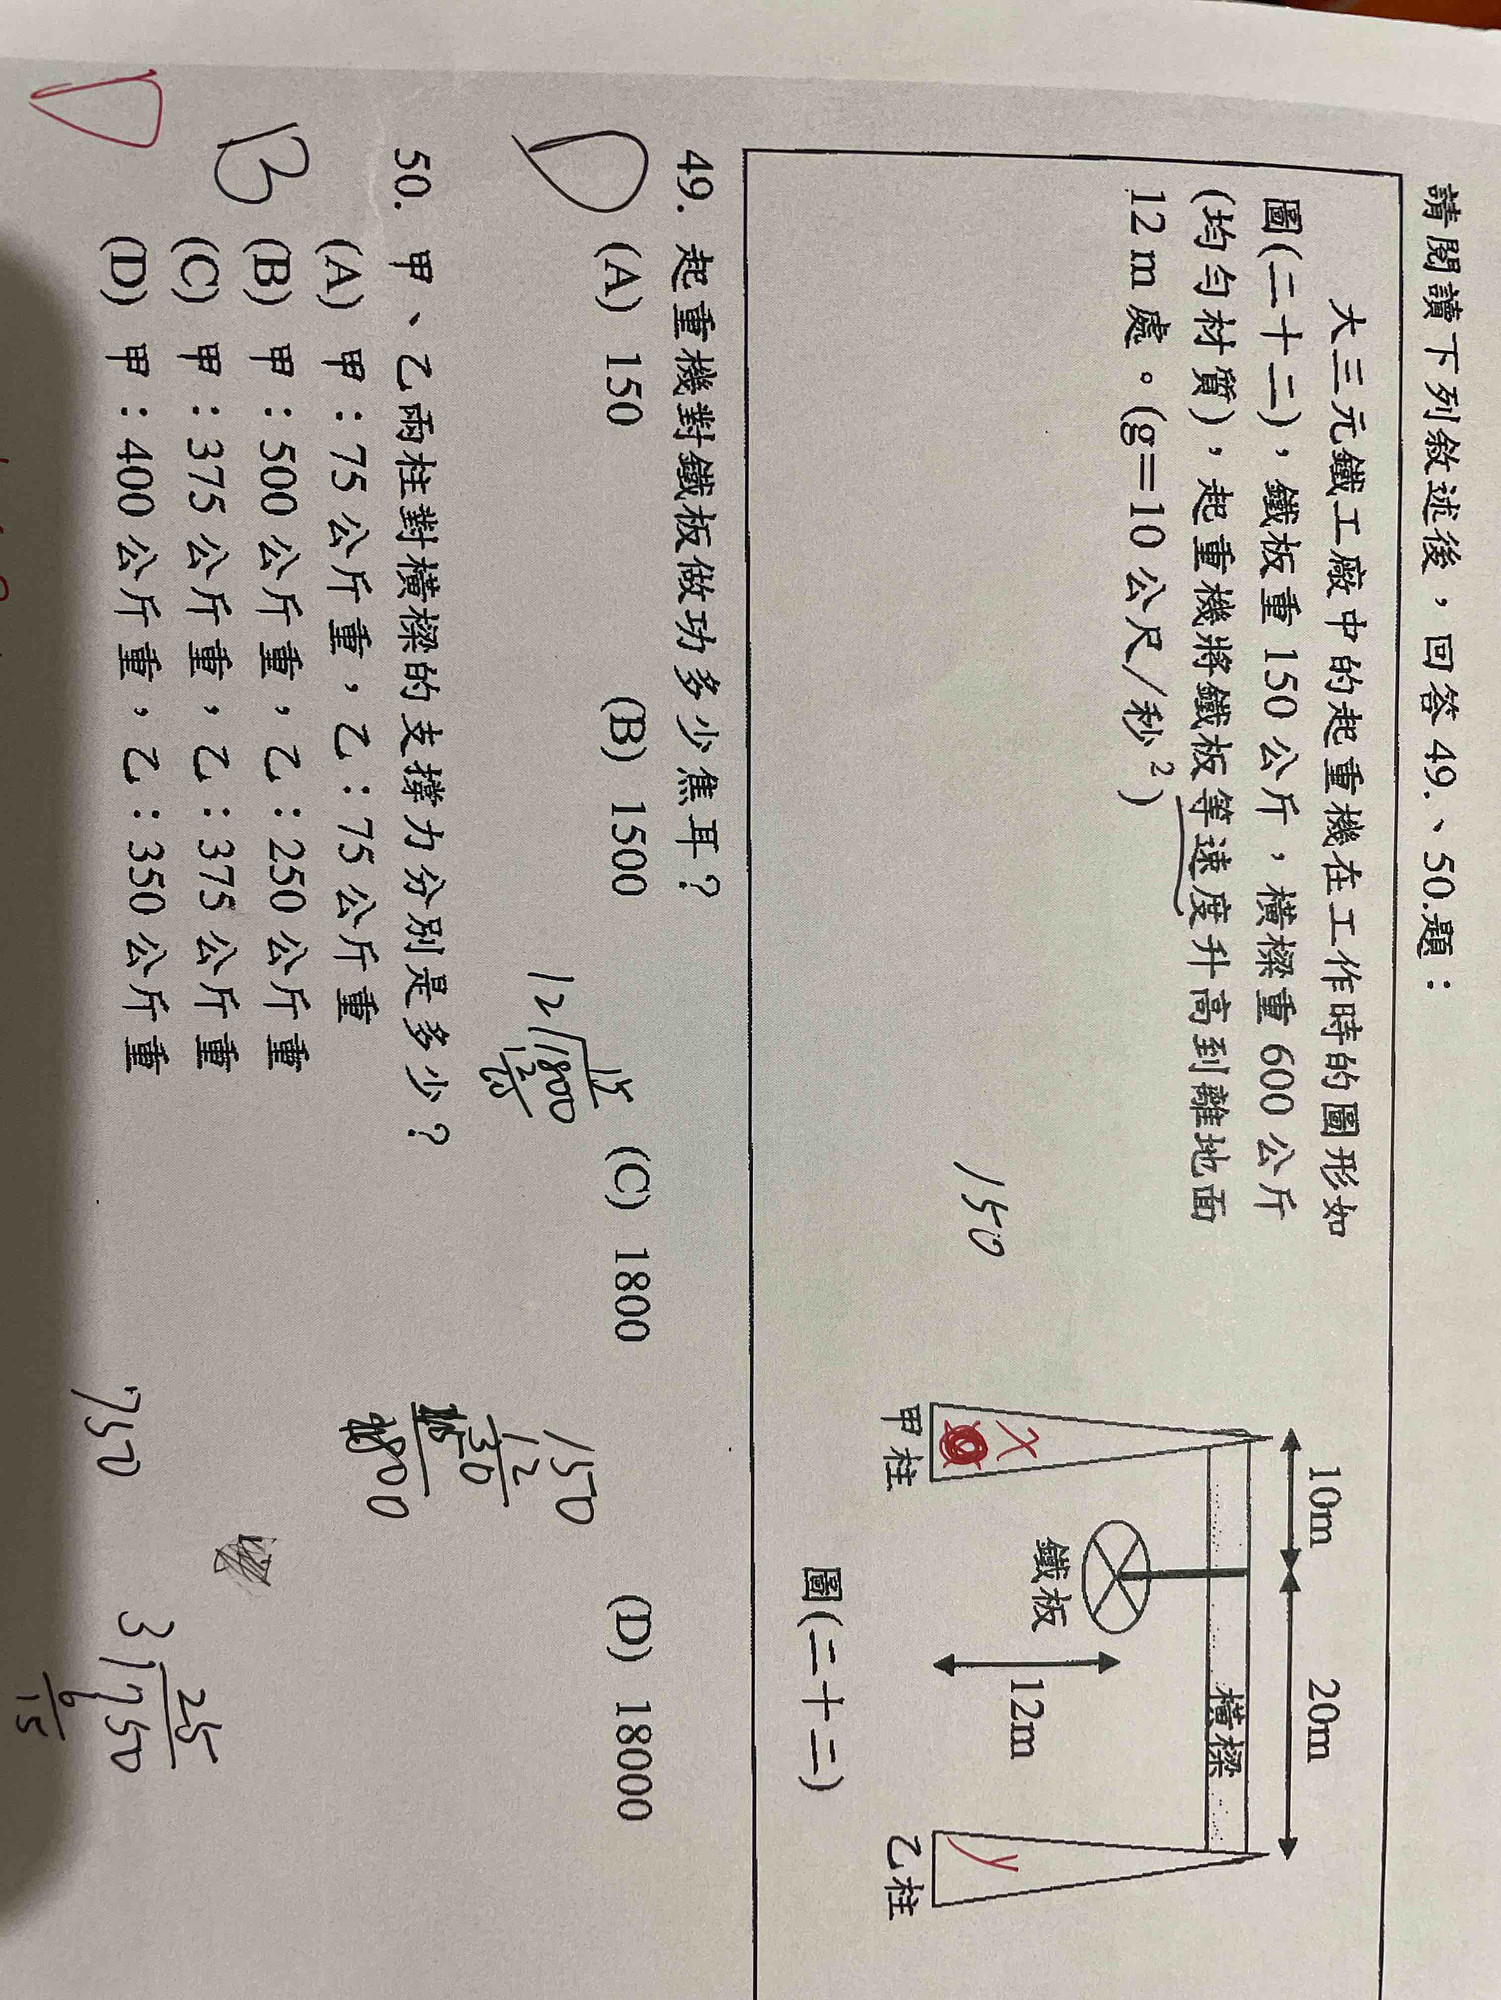 請閱讀下列敘述後，回答49.、50.題：
大三元鐵工廠中的起重機在工作時的圖形如
圖(二十二)，鐵板重150公斤，橫樑重600公斤
(均勻材質)，起重機將鐵板等速度升高到離地面
12m處。(g＝10公尺/秒²)
150
10m
20m
橫樑
鐵板
12m
x
y
甲柱
乙柱
圖(二十二)
49. 起重機對鐵板做功多少焦耳？
D
(A) 150 (B) 1500 (C) 1800 (D) 18000
15
12 1800
12
60
150
12
30
1800
50. 甲、乙兩柱對橫樑的支撐力分別是多少？
(A) 甲：75公斤重，乙：75公斤重
B
(B) 甲：500公斤重，乙：250公斤重
(C) 甲：375公斤重，乙：375公斤重
(D) 甲：400公斤重，乙：350公斤重
D
750
25
3 750
6
15